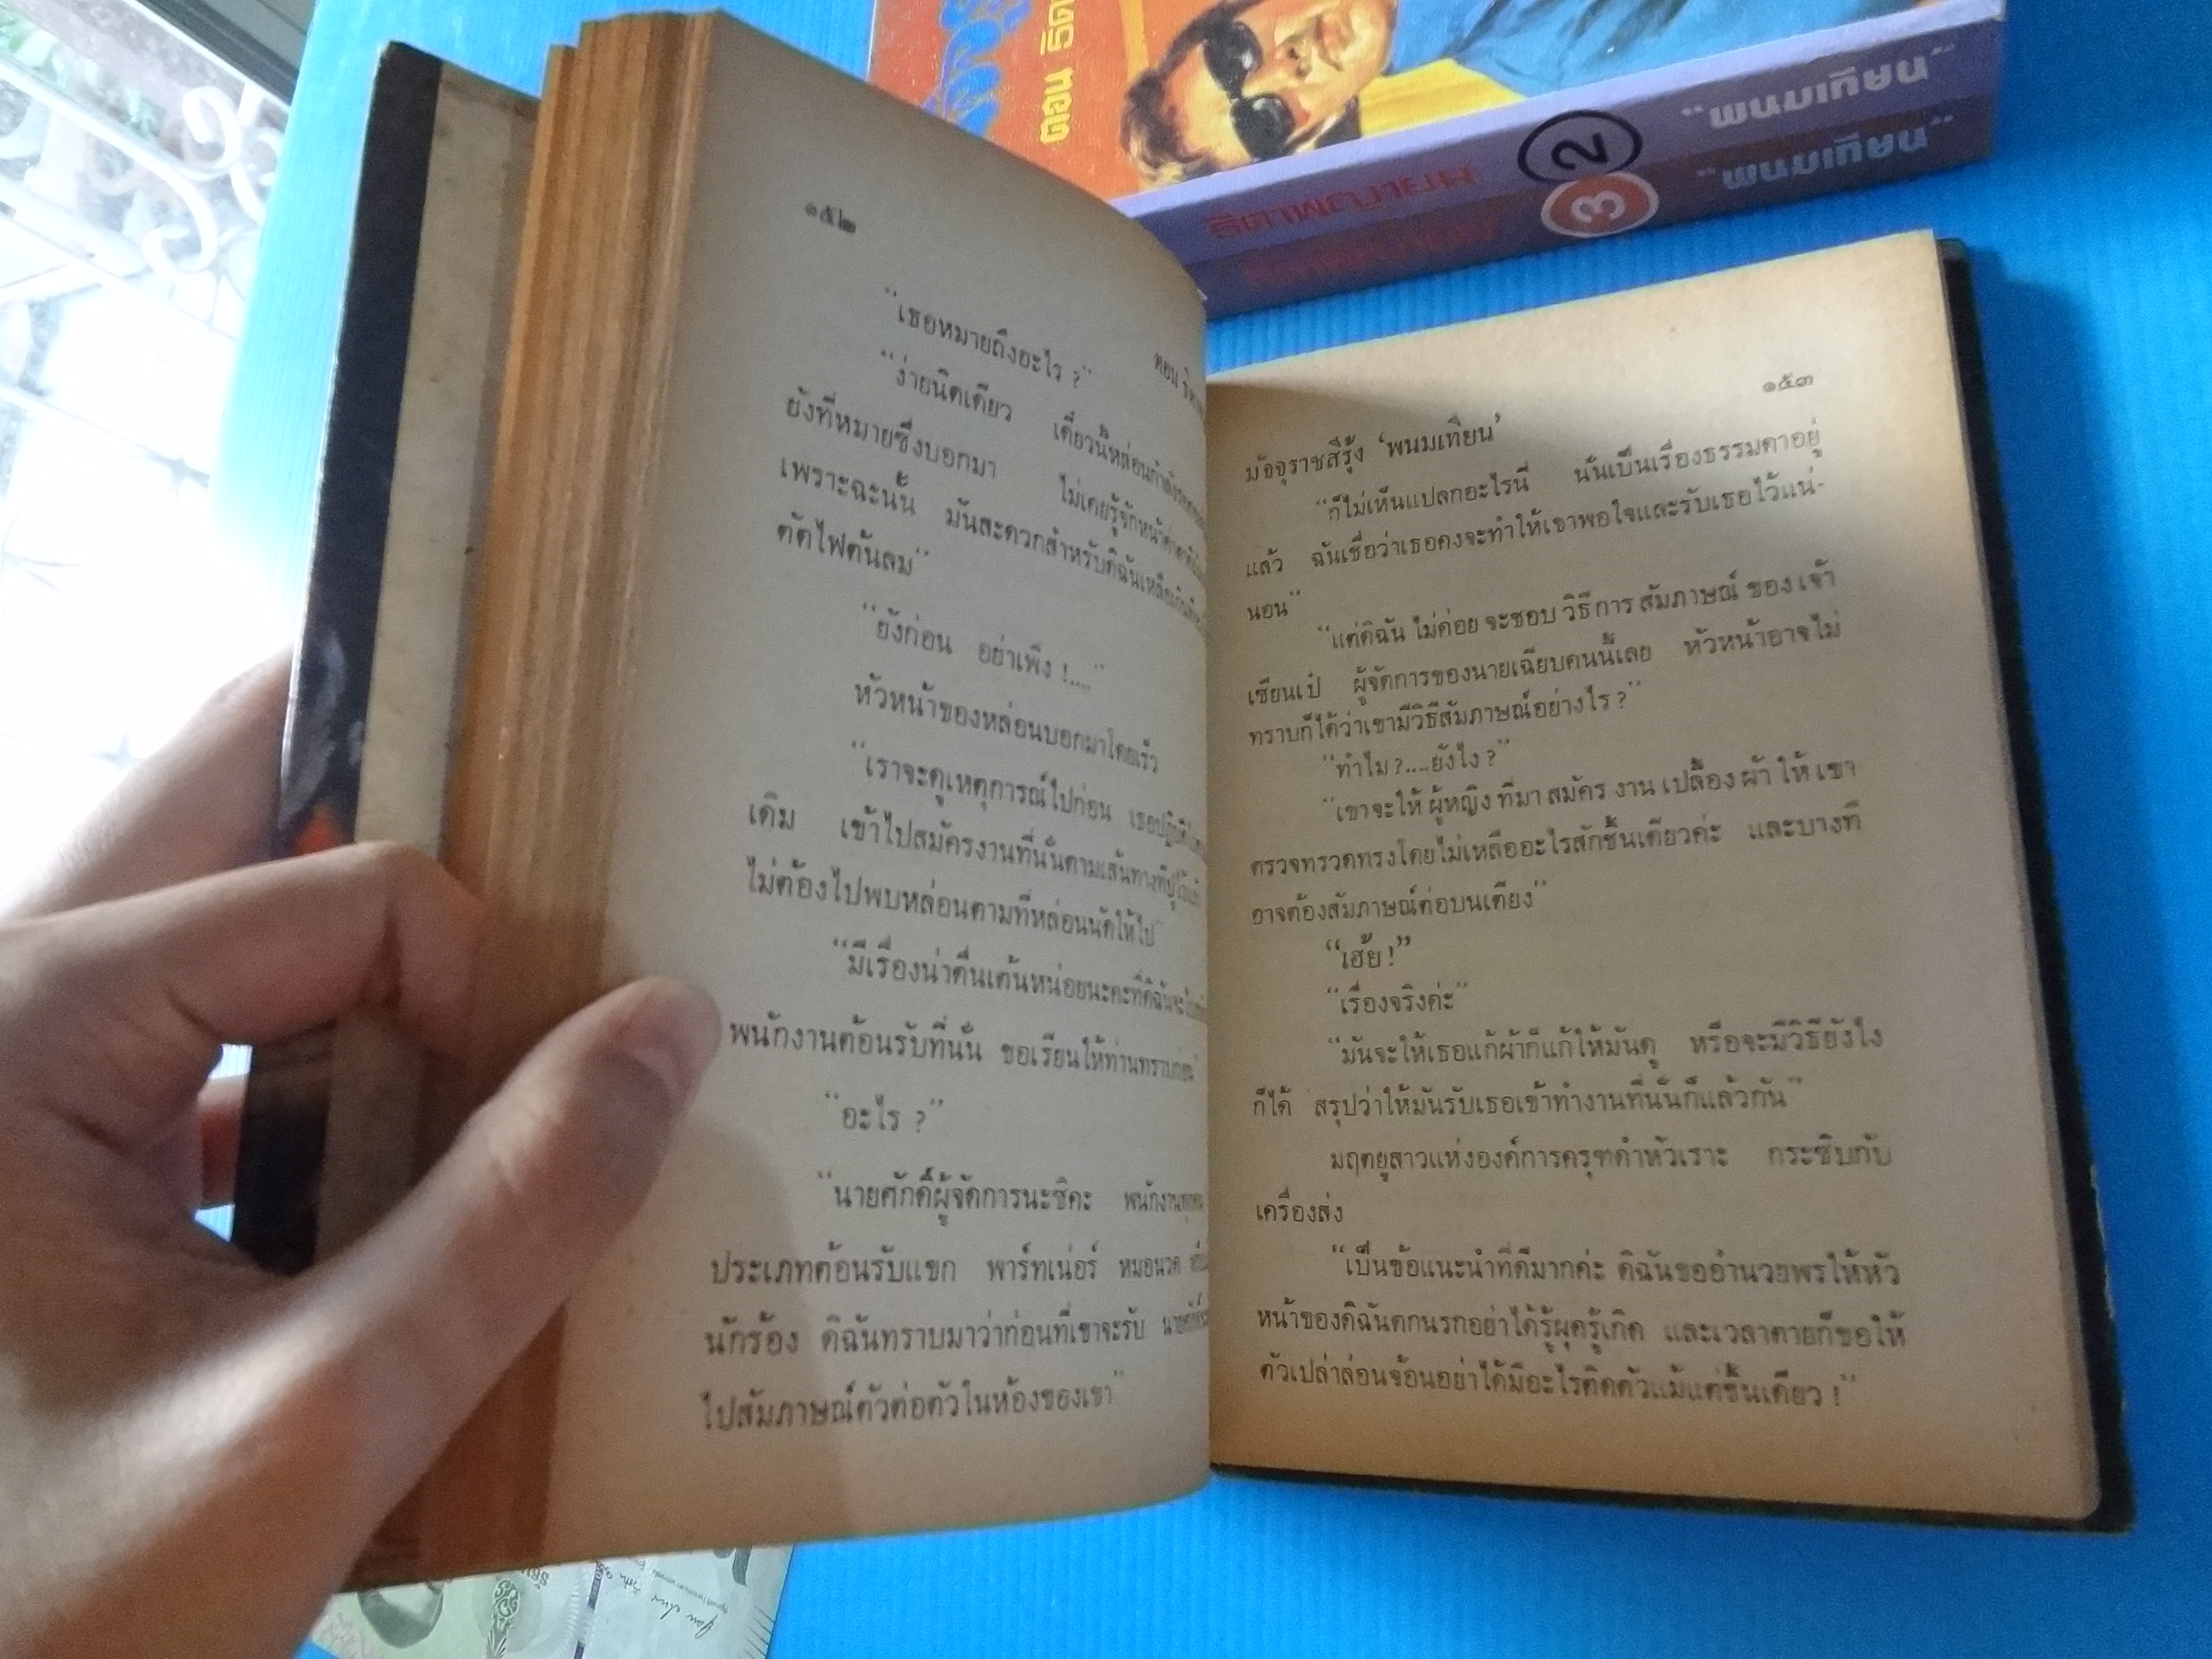 ตอน ธิดา
ธิดาพญายม ๒ "พนมเทียน"
๓ "พนมเทียน"
๑๕๒
ตอน
"เธอหมายถึงอะไร ?"
"ง่ายนิดเดียว เดี๋ยวนี้หล่อนกำลัง
ยังที่หมายซึ่งบอกมา ไม่เคยรู้จักหน้าค่าตา
เพราะฉะนั้น มันสะดวกสำหรับดิฉันเหลือเกิน
ตัดไฟต้นลม"
"ยังก่อน อย่าเพิ่ง !...."
หัวหน้าของหล่อนบอกมาโดยเร็ว
"เราจะดูเหตุการณ์ไปก่อน เธอปฏิบัติ
เดิม เข้าไปสมัครงานที่นั่นตามเส้นทางที่ปูไว้แล้ว
ไม่ต้องไปพบหล่อนตามที่หล่อนนัดให้ไป"
"มีเรื่องน่าตื่นเต้นหน่อยนะคะที่ดิฉันจะ
พนักงานต้อนรับที่นั่น ขอเรียนให้ท่านทราบก่อน"
"อะไร ?"
"นายศักดิ์ผู้จัดการนะซิคะ พนักงานทุกคน
ประเภทต้อนรับแขก พาร์ทเน่อร์ หมอนวด
นักร้อง ดิฉันทราบมาว่าก่อนที่เขาจะรับ
ไปสัมภาษณ์ตัวต่อตัวในห้องของเขา"
๑๕๓
มัจจุราชสีรุ้ง 'พนมเทียน'
"ก็ไม่เห็นแปลกอะไรนี่ นั่นเป็นเรื่องธรรมดาอยู่
แล้ว ฉันเชื่อว่าเธอคงจะทำให้เขาพอใจและรับเธอไว้แน่-
นอน"
"แต่ดิฉัน ไม่ค่อย จะชอบ วิธีการ สัมภาษณ์ ของ เจ้า
เซียนเป๋ ผู้จัดการของนายเฉียบคนนี้เลย หัวหน้าอาจไม่
ทราบก็ได้ว่าเขามีวิธีสัมภาษณ์อย่างไร ?"
"ทำไม ?....ยังไง ?"
"เขาจะให้ ผู้หญิง ที่มา สมัคร งาน เปลื้อง ผ้า ให้ เขา
ตรวจทรวดทรงโดยไม่เหลืออะไรสักชิ้นเดียวค่ะ และบางที
อาจต้องสัมภาษณ์ต่อบนเตียง"
"เฮ้ย !"
"เรื่องจริงค่ะ"
"มันจะให้เธอแก้ผ้าก็แก้ให้มันดู หรือจะมีวิธียังไง
ก็ได้ สรุปว่าให้มันรับเธอเข้าทำงานที่นั่นก็แล้วกัน"
มฤตยูสาวแห่งองค์การครุฑดำหัวเราะ กระซิบกับ
เครื่องส่ง
"เป็นข้อแนะนำที่ดีมากค่ะ ดิฉันขออำนวยพรให้หัว
หน้าของดิฉันตกนรกอย่าได้รู้ผุดรู้เกิด และเวลาตายก็ขอให้
ตัวเปล่าล่อนจ้อนอย่าได้มีอะไรติดตัวแม้แต่ชิ้นเดียว !"